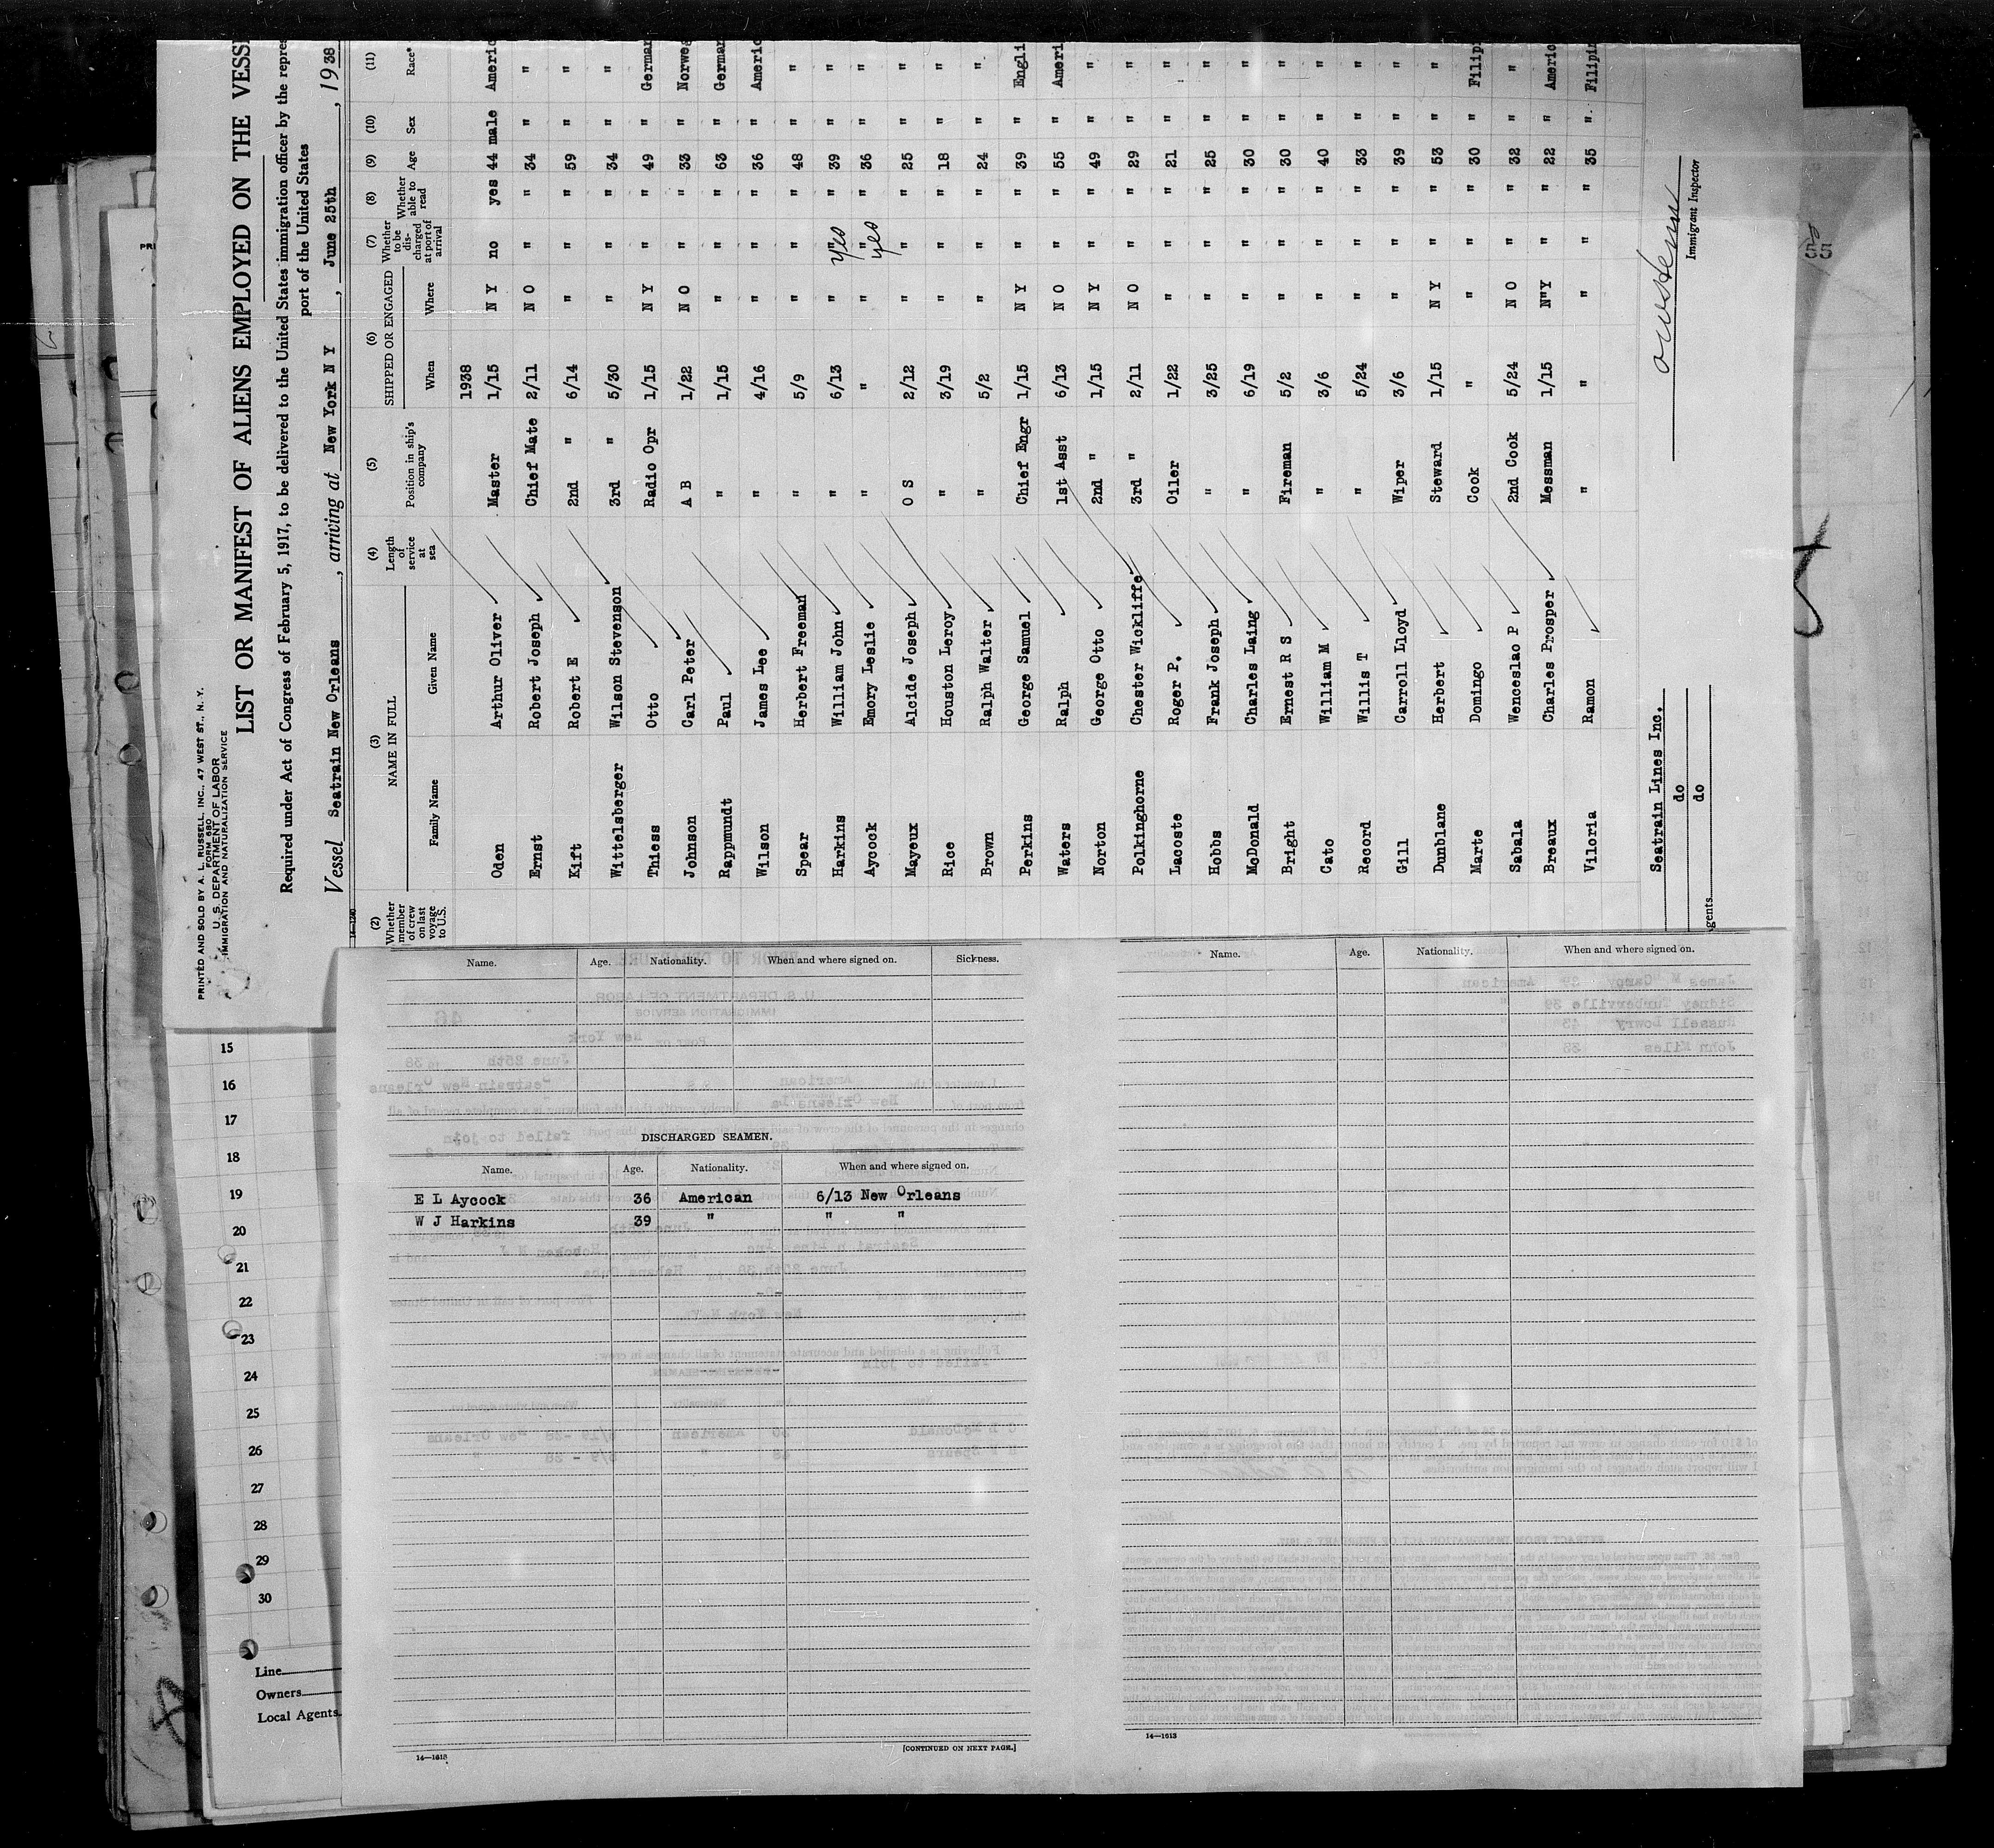 PRINTED AND SOLD BY A. L. RUSSELL, INC., 47 WEST ST., N. Y.
FORM 680
U. S. DEPARTMENT OF LABOR
IMMIGRATION AND NATURALIZATION SERVICE
LIST OR MANIFEST OF ALIENS EMPLOYED ON THE VESS
Required under Act of Congress of February 5, 1917, to be delivered to the United States immigration officer by the repres
port of the United States
Vessel Seatrain New Orleans, arriving at New York N Y, June 25th, 1938
(2) Whether member of crew on last voyage to U.S. (3) NAME IN FULL Family Name Given Name (4) Length of service at sea (5) Position in ship's company (6) SHIPPED OR ENGAGED When Where (7) Whether to be discharged at port of arrival (8) Whether able to read (9) Age (10) Sex (11) Race*
1938
Oden Arthur Oliver Master 1/15 N Y no yes 44 male Americ
Ernst Robert Joseph Chief Mate 2/11 N O " " 34 " "
Kift Robert E 2nd " 6/14 " " " 59 " "
Wittelsberger Wilson Stevenson 3rd " 5/30 " " " 34 " "
Thiess Otto Radio Opr 1/15 N Y " " 49 " German
Johnson Carl Peter A B 1/22 N O " " 33 " Norweg
Rappmundt Paul " 1/15 " " " 63 " German
Wilson James Lee " 4/16 " " " 36 " Americ
Spear Herbert Freeman " 5/9 " " " 48 " "
Harkins William John " 6/13 " " yes " 39 " "
Aycock Emory Leslie " " " " yes " 36 " "
Mayeux Alcide Joseph O S 2/12 " " " 25 " "
Rice Houston Leroy " 3/19 " " " 18 " "
Brown Ralph Walter " 5/2 " " " 24 " "
Perkins George Samuel Chief Engr 1/15 N Y " " 39 " Engli
Waters Ralph 1st Asst 6/13 N O " " 55 " Ameri
Norton George Otto 2nd " 1/15 N Y " " 49 " "
Polkinghorne Chester Wickliffe 3rd " 2/11 N O " " 29 " "
Lacoste Roger P. Oiler 1/22 " " " 21 " "
Hobbs Frank Joseph " 3/25 " " " 25 " "
McDonald Charles Laing " 6/19 " " " 30 " "
Bright Ernest R S Fireman 5/2 " " " 30 " "
Cato William M " 3/6 " " " 40 " "
Record Willis T " 5/24 " " " 33 " "
Gill Carroll Lloyd Wiper 3/6 " " " 39 " "
Dunblane Herbert Steward 1/15 N Y " " 53 " "
Marte Domingo Cook " " " " 30 " Filip
Sabala Wenceslao P 2nd Cook 5/24 N O " " 32 " "
Breaux Charles Prosper Messman 1/15 N"Y " " 22 " Americ
Viloria Ramon " " " " " 35 " Filipin
Seatrain Lines Inc.
do
Agents do
Immigrant Inspector
Name. Age. Nationality. When and where signed on. Sickness.
DISCHARGED SEAMEN.
Name. Age. Nationality. When and where signed on.
E L Aycock 36 American 6/13 New Orleans
W J Harkins 39 " " "
14—1613
[CONTINUED ON NEXT PAGE.]
Name. Age. Nationality. When and where signed on.
14—1613
15
16
17
18
19
20
21
22
23
24
25
26
27
28
29
30
Line
Owners
Local Agents
55